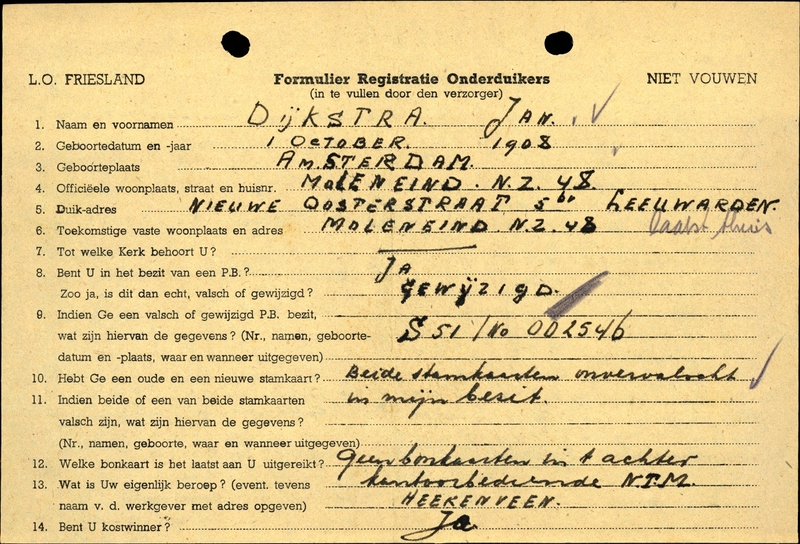 L.O. FRIESLAND Formulier Registratie Onderduikers NIET VOUWEN
(in te vullen door den verzorger)
1. Naam en voornamen DIJKSTRA. JAN.
2. Geboortedatum en -jaar 1 OCTOBER. 1908
3. Geboorteplaats AMSTERDAM.
4. Officiëele woonplaats, straat en huisnr. MOLENEIND. N.Z. 48.
5. Duik-adres NIEUWE OOSTERSTRAAT 5 LEEUWARDEN.
6. Toekomstige vaste woonplaats en adres MOLENEIND. N.Z. 48 laatst thuis
7. Tot welke Kerk behoort U?
8. Bent U in het bezit van een P.B.? JA
Zoo ja, is dit dan echt, valsch of gewijzigd? GEWIJZIGD.
9. Indien Ge een valsch of gewijzigd P.B. bezit,
wat zijn hiervan de gegevens? (Nr., namen, geboorte- S 51/No 002546
datum en -plaats, waar en wanneer uitgegeven)
10. Hebt Ge een oude en een nieuwe stamkaart? Beide stamkaarten onvervalscht
11. Indien beide of een van beide stamkaarten in mijn bezit.
valsch zijn, wat zijn hiervan de gegevens?
(Nr., namen, geboorte, waar en wanneer uitgegeven)
12. Welke bonkaart is het laatst aan U uitgereikt? Geen bonkaarten in 't achter
13. Wat is Uw eigenlijk beroep? (event. tevens kantoorbediende N.T.M.
naam v. d. werkgever met adres opgeven) HEERENVEEN.
14. Bent U kostwinner? Ja